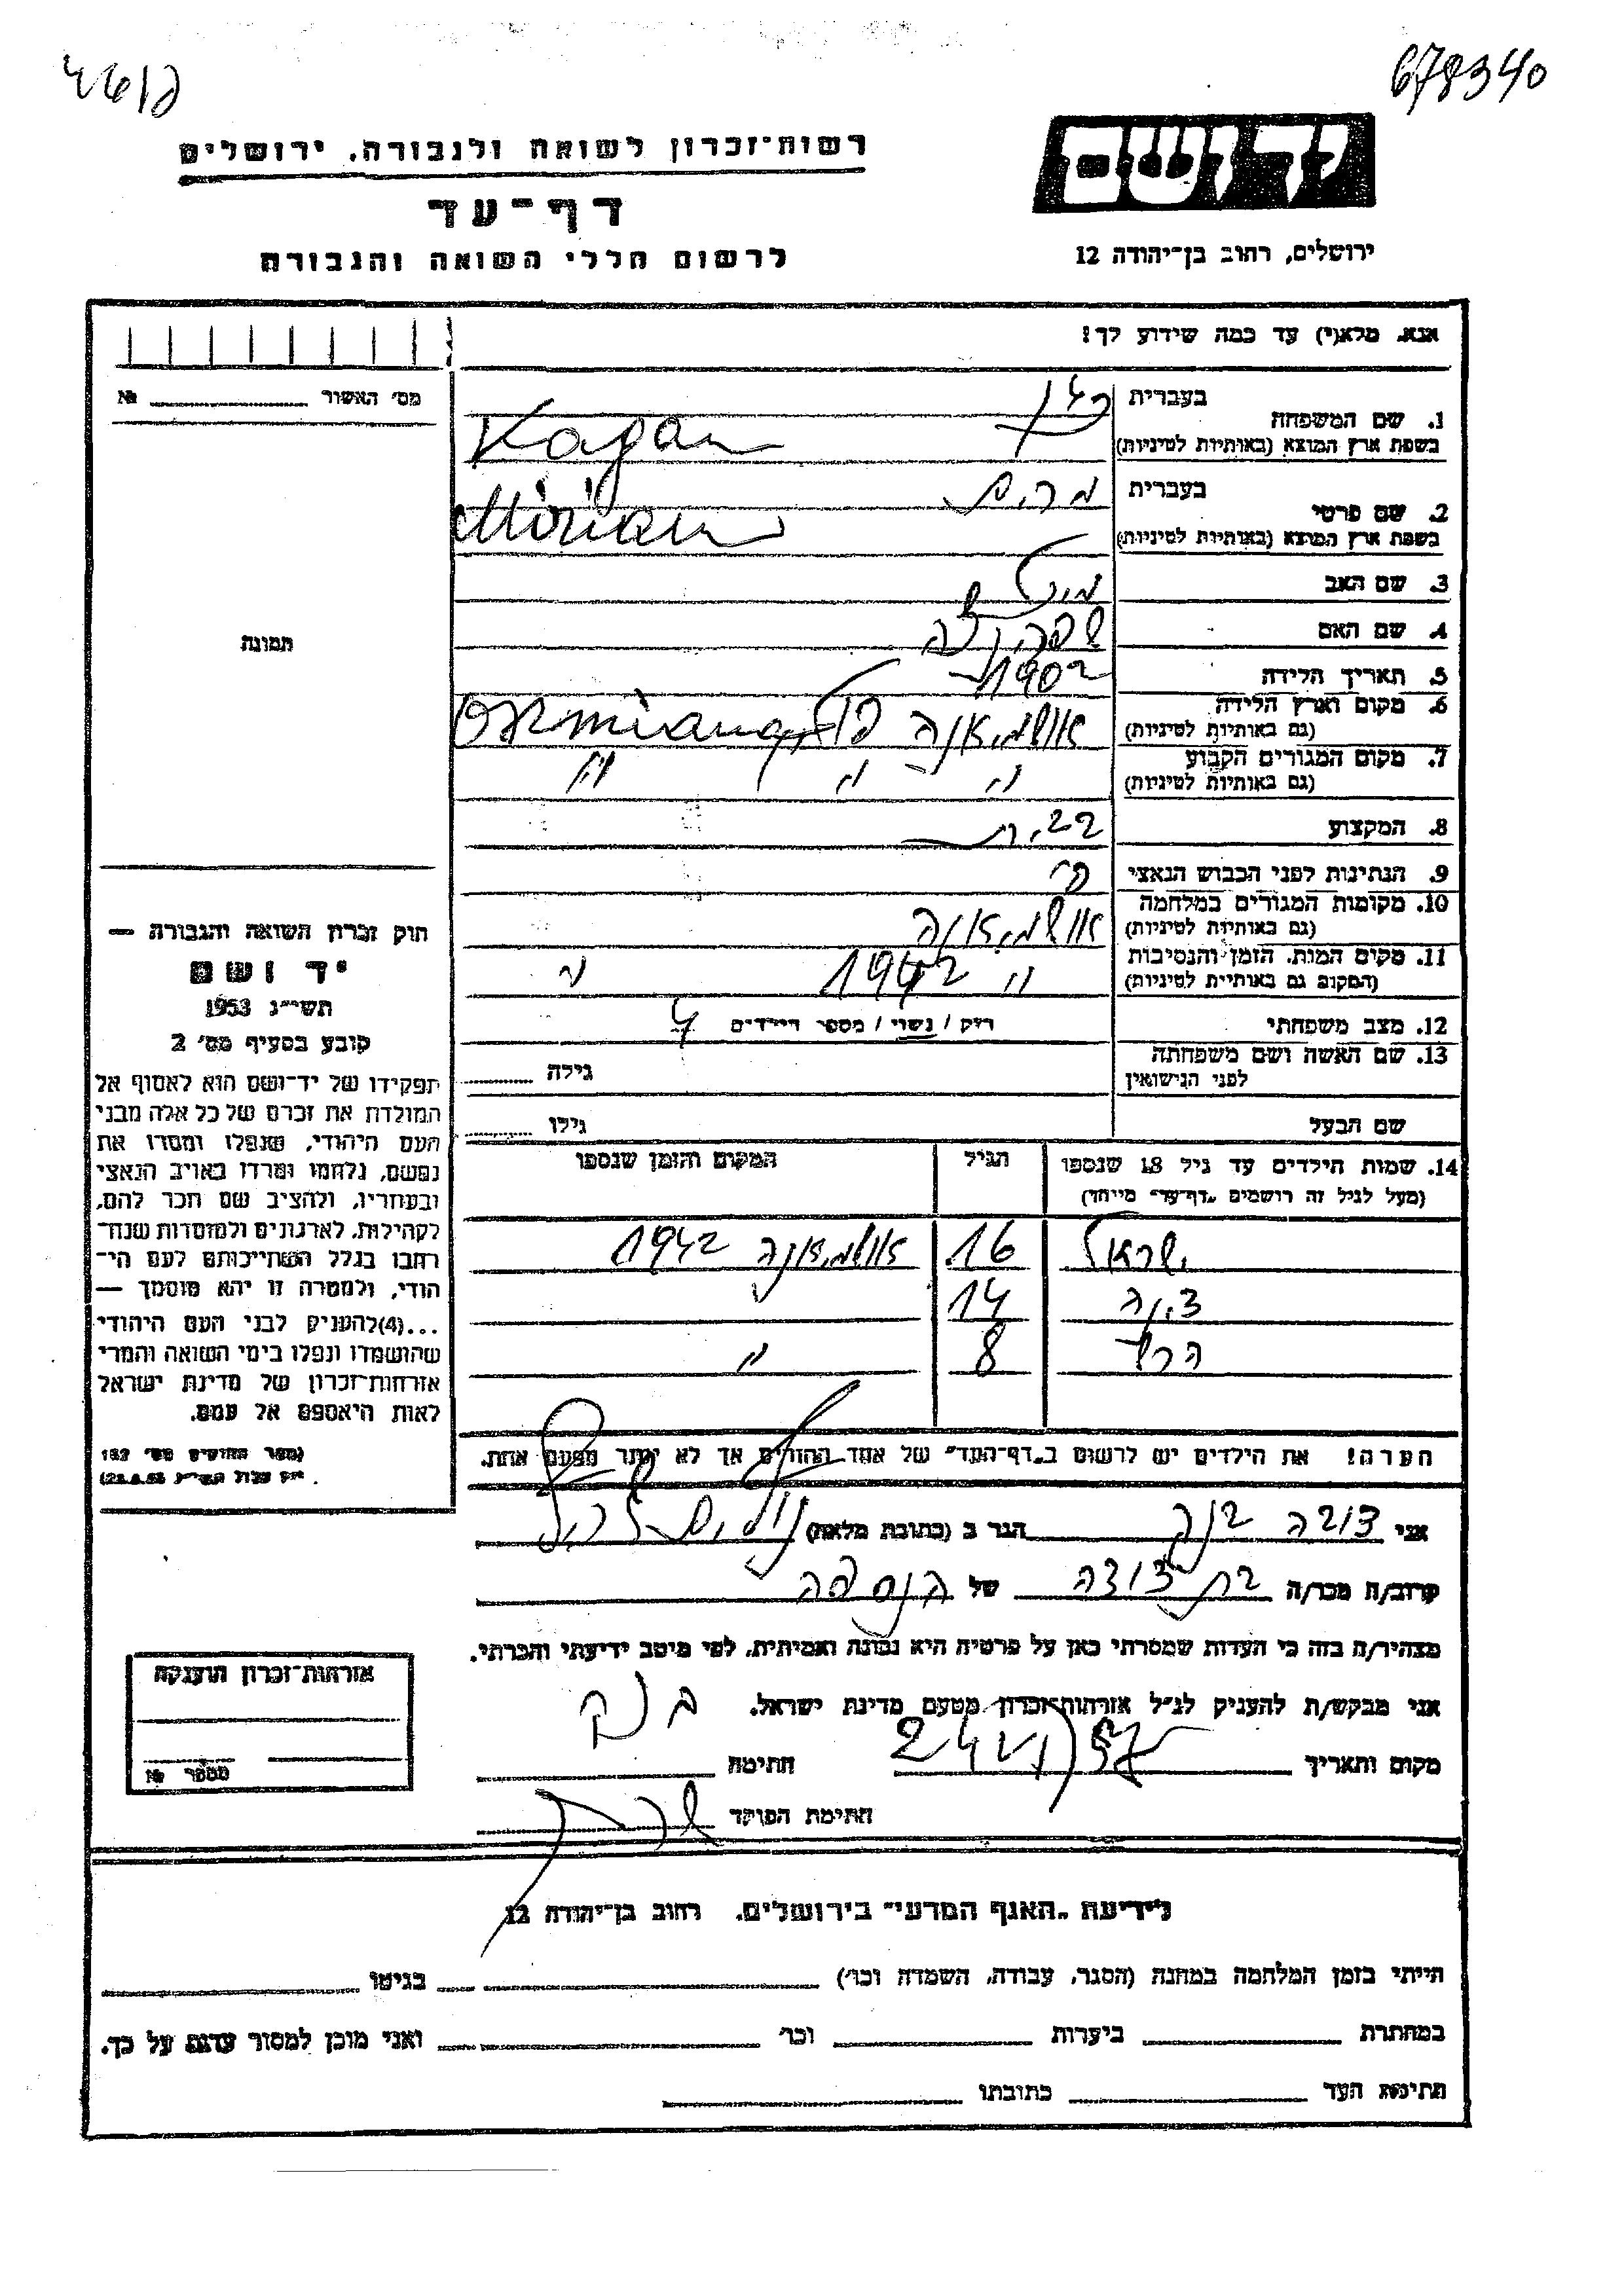 678340
רשות־זכרון לשואה ולגבורה, ירושלים
יד ושם
דף־עד
לרשום חללי השואה והגבורה
ירושלים, רחוב בן־יהודה 12
אנא, מלא(י) עד כמה שידוע לך!
מס׳ האשור № 
1. שם המשפחה
בעברית כגן
בשפת ארץ המוצא (באותיות לטיניות) Kagan
2. שם פרטי
בעברית מרים
בשפת ארץ המוצא (באותיות לטיניות) Miriam
3. שם האב
תמונה
4. שם האם
5. תאריך הלידה 1902
6. מקום וארץ הלידה (גם באותיות לטיניות) אושמיאנה פולין Osmiana
7. מקום המגורים הקבוע (גם באותיות לטיניות) " " "
8. המקצוע
9. הנתינות לפני הכבוש הנאצי
10. מקומות המגורים במלחמה (גם באותיות לטיניות) אושמיאנה
11. מקום המות, הזמן והנסיבות (המקום גם באותיות לטיניות) " 1942 "
12. מצב משפחתי רווק / נשוי / מספר הילדים 4
13. שם האשה ושם משפחתה לפני הנישואין גילה
שם הבעל גילו
14. שמות הילדים עד גיל 18 שנספו הגיל המקום והזמן שנספו
(מעל לגיל זה רושמים "דף־עד" מיוחד)
ישראל 16 אושמיאנה 1942
צינה 14 "
8 "
הערה! את הילדים יש לרשום ב"דף־העד" של אחד ההורים אך לא יותר מפעם אחת.
חוק זכרון השואה והגבורה —
יד ושם
תשי״ג 1953
קובע בסעיף מס׳ 2
תפקידו של יד־ושם הוא לאסוף אל
המולדת את זכרם של כל אלה מבני
העם היהודי, שנפלו ומסרו את
נפשם, נלחמו ומרדו באויב הנאצי
ובעוזריו, ולהציב שם וזכר להם,
לקהילות, לארגונים ולמוסדות שנח־
רבו בגלל השתייכותם לעם הי־
הודי, ולמטרה זו יהא מוסמך —
...(4) להעניק לבני העם היהודי
שהושמדו ונפלו בימי השואה והמרי
אזרחות־זכרון של מדינת ישראל
לאות היאספם אל עמם.
(ספר החוקים מס׳ 132
אני הגר ב (כתובת מלאה)
קרוב/ה מכר/ה בת דודה של הנספה
מצהיר/ה בזה כי העדות שמסרתי כאן על פרטיה היא נכונה ואמיתית, לפי מיטב ידיעתי והכרתי.
אני מבקש/ת להעניק לנ״ל אזרחות־זכרון מטעם מדינת ישראל.
מקום ותאריך חתימה
חתימת הפוקד
אזרחות־זכרון הוענקה
מספר №
לידיעת "האגף המדעי" בירושלים, רחוב בן־יהודה 12
הייתי בזמן המלחמה במחנה (הסגר, עבודה, השמדה וכו׳) בגיטו
במחתרת ביערות וכו׳ ואני מוכן למסור עדות על כך.
חתימת העד כתובתו